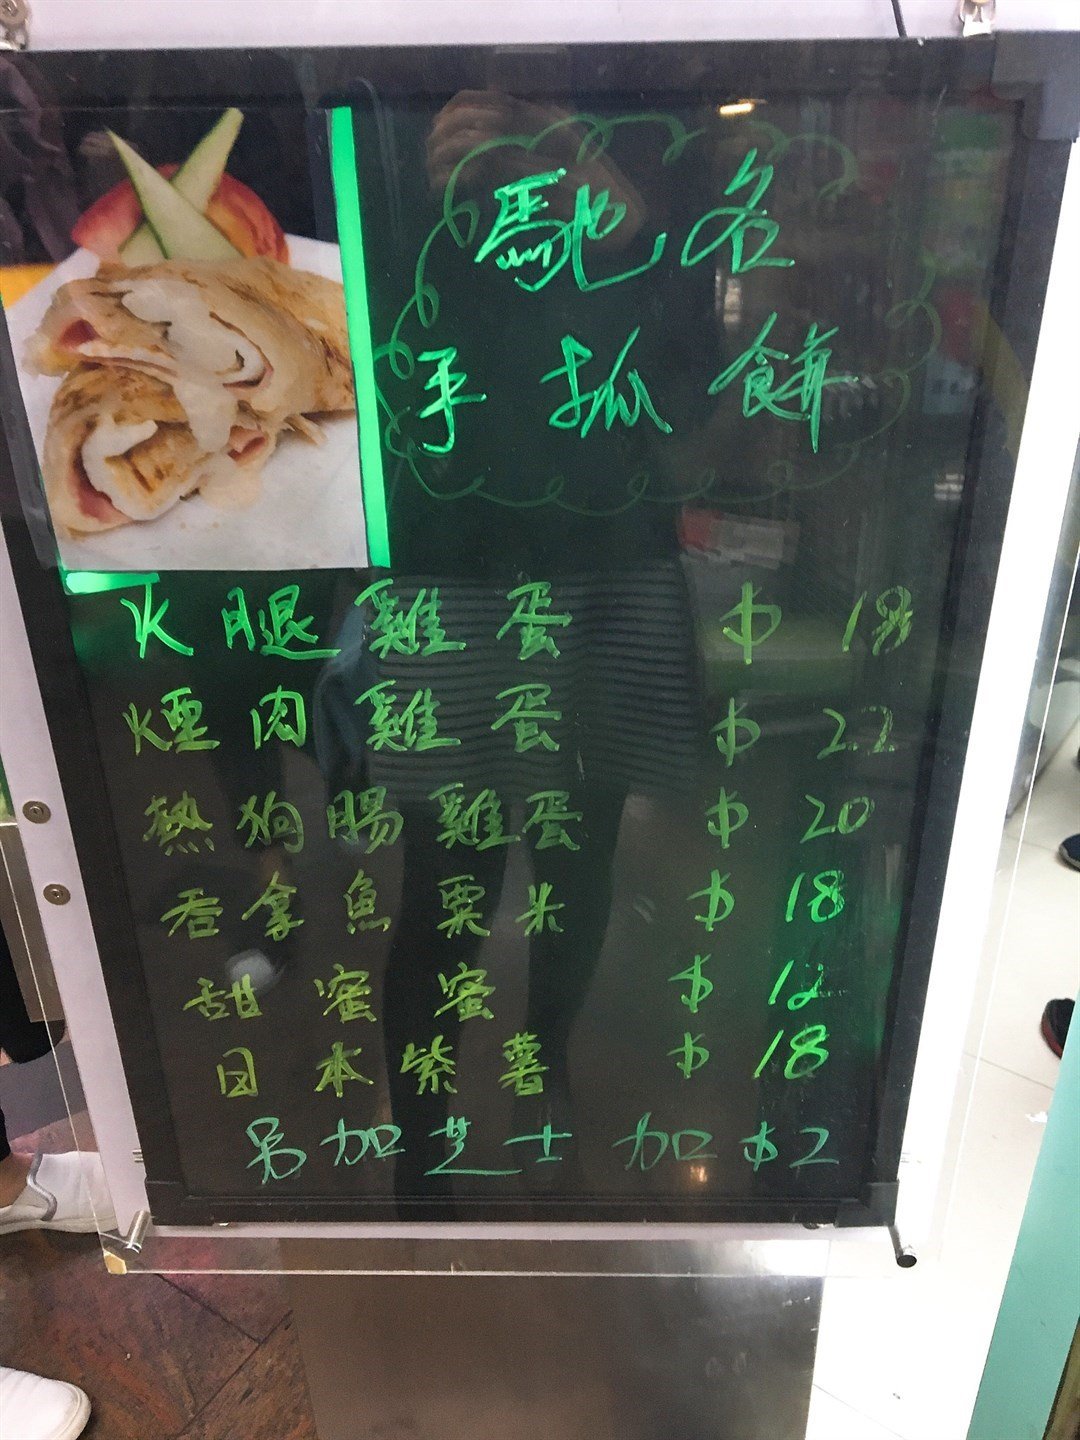 馳名
手抓餅
火腿雞蛋 $18
煙肉雞蛋 $22
熱狗腸雞蛋 $20
吞拿魚粟米 $18
甜蜜蜜 $12
日本紫薯 $18
另加芝士加$2